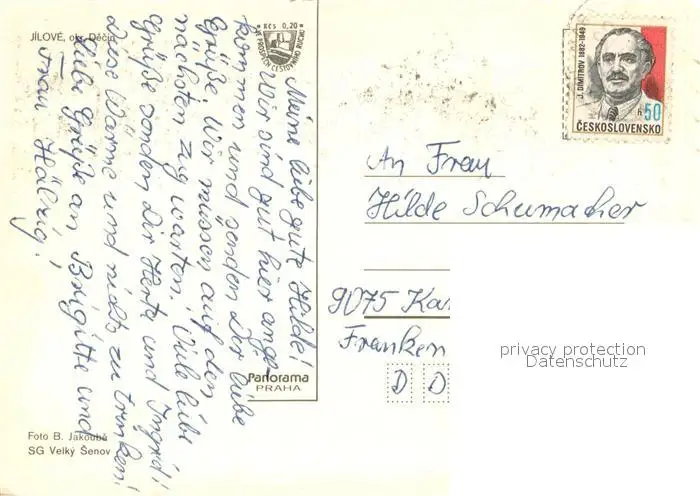 JÍLOVÉ, okr. Děčín
Kčs 0,20
VE PROSPĚCH CESTOVNÍHO RUCHU
Meine liebe gute Hilde!
Wir sind gut hier ange-
kommen und senden Dir liebe
Grüße. Wir müssen auf den
nächsten Zug warten. Viele liebe
Grüße senden Dir Herta und Ingrid!
Diese Wärme und nichts zu trinken!
Liebe Grüße an Brigitte und
Frau Hälzig!
Panorama
PRAHA
Foto B. Jakoubě
SG Velký Šenov
J. DIMITROV 1882-1949
h 50
ČESKOSLOVENSKO
An Frau
Hilde Schumacher
9075 Kar
Franken
D D
privacy protection
Datenschutz